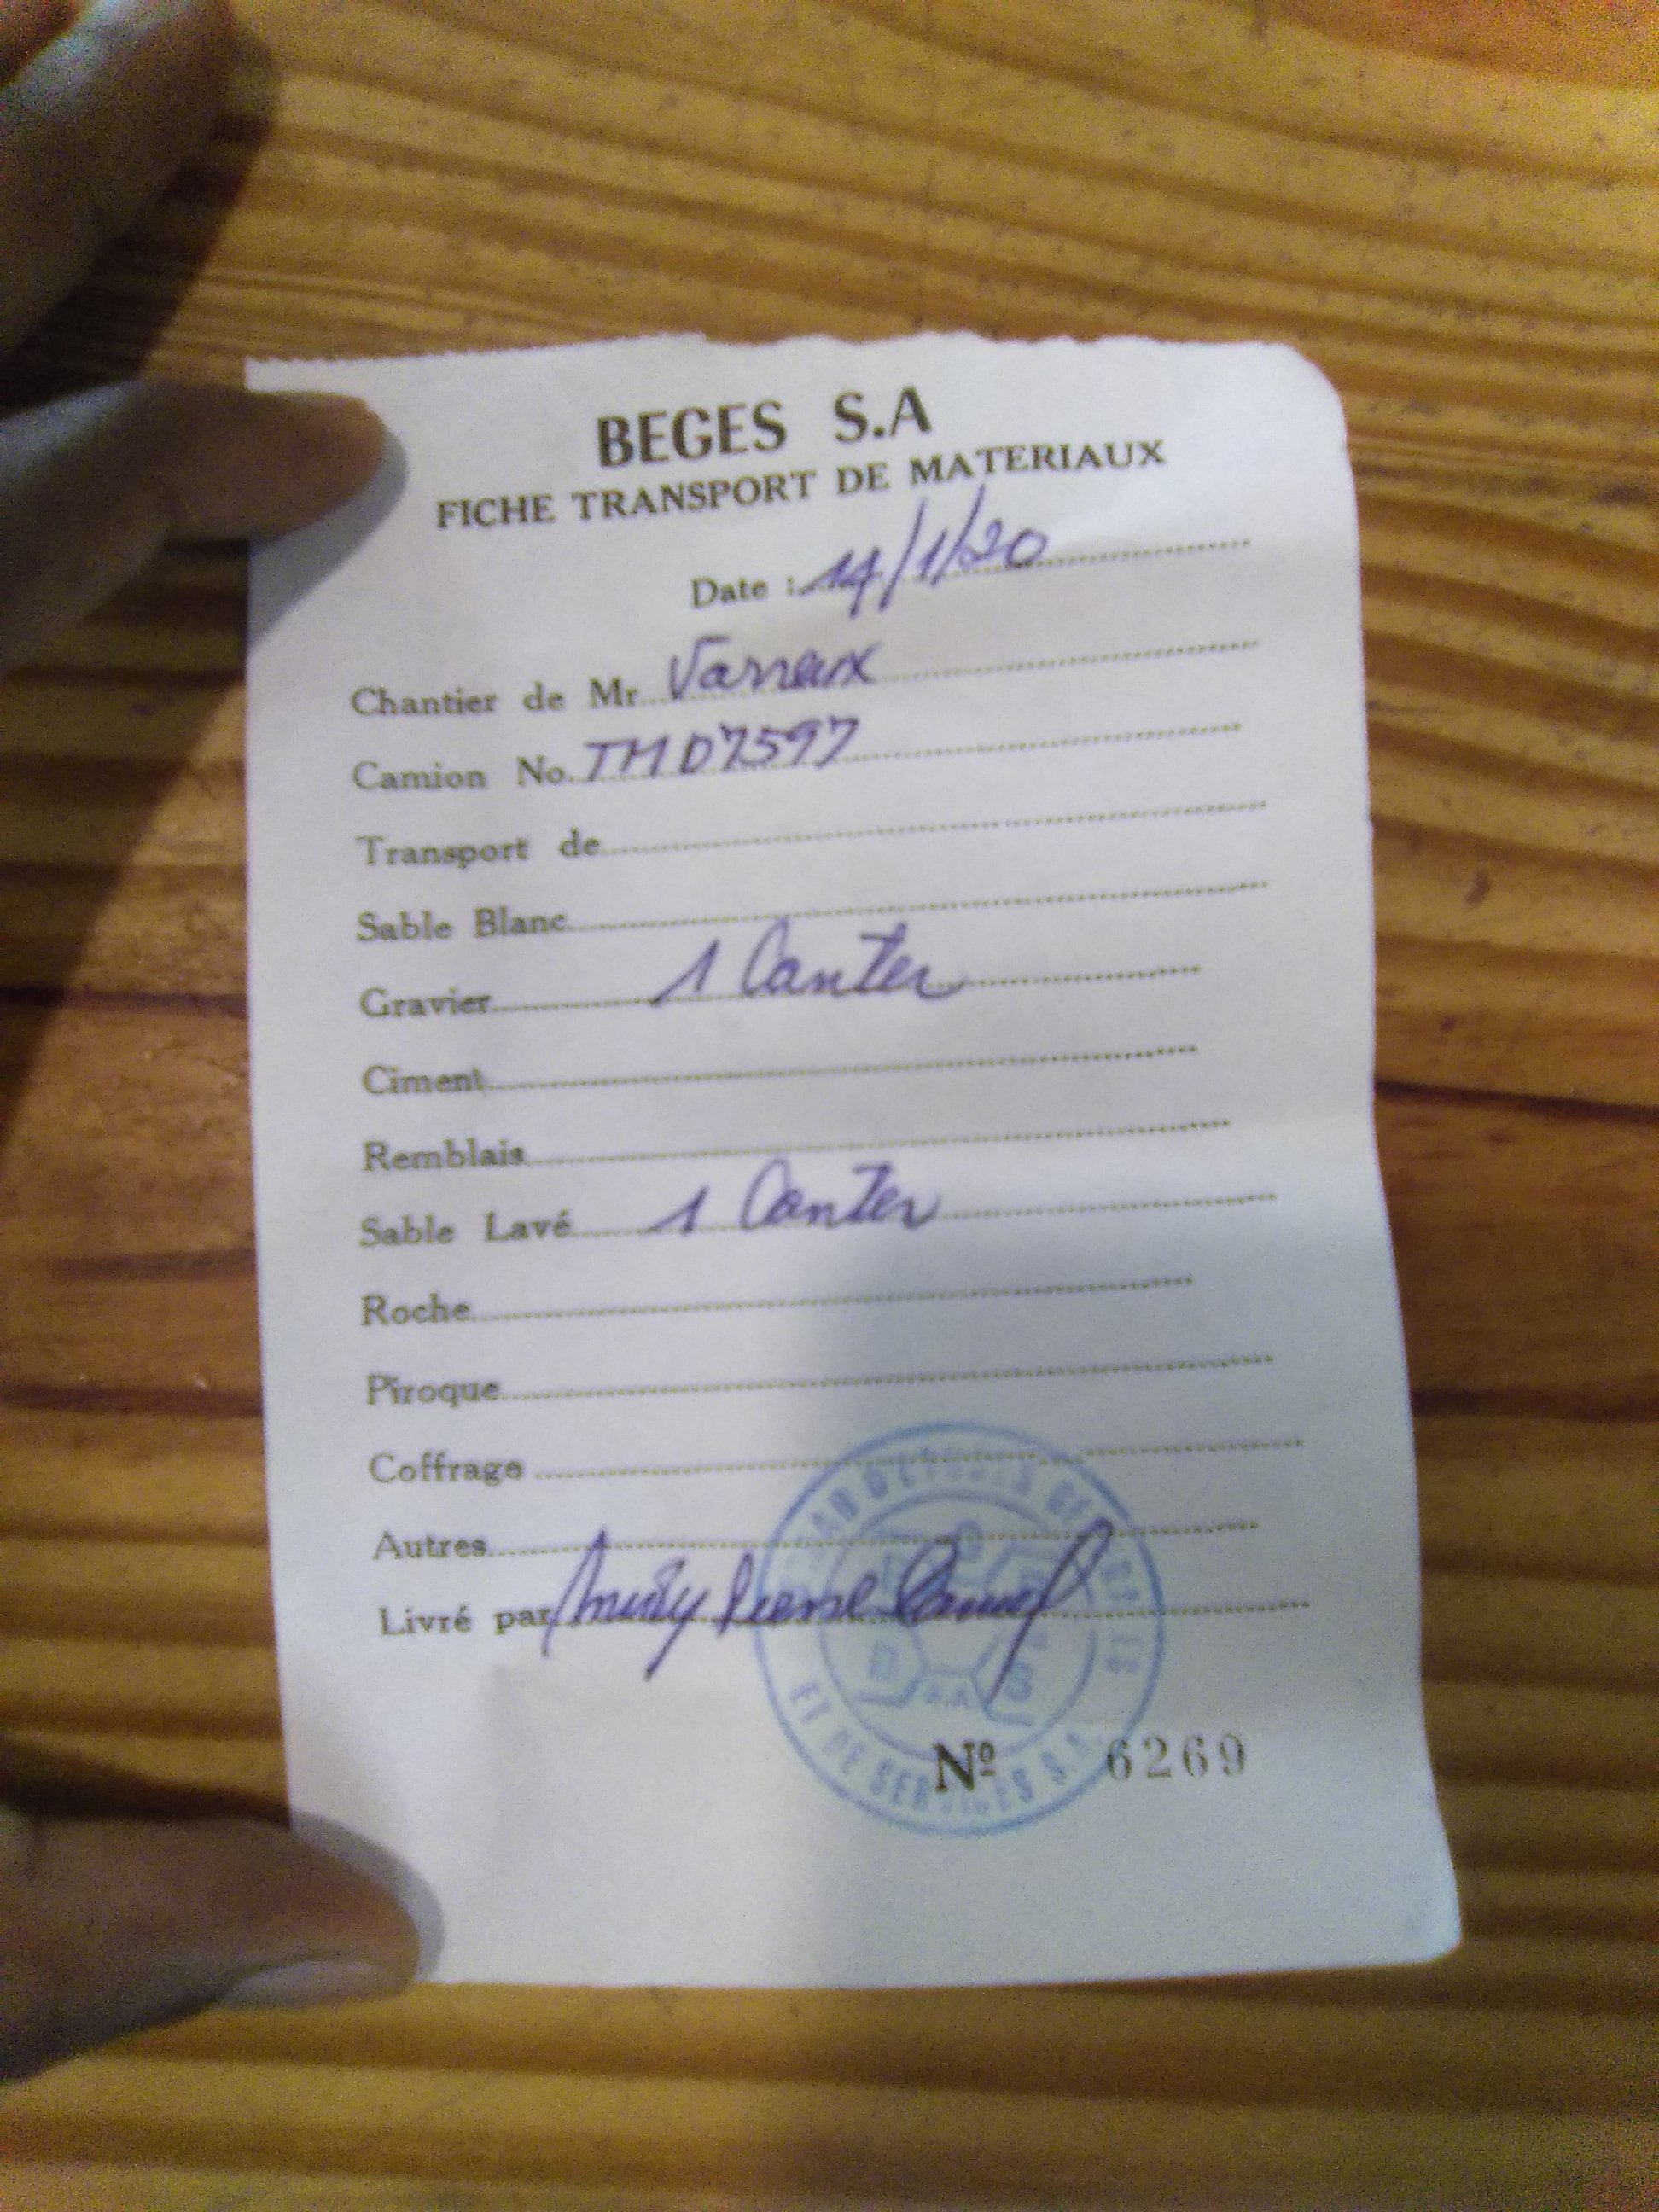 BEGES S.A
FICHE TRANSPORT DE MATERIAUX
Date : 14/1/20
Chantier de Mr Varreux
Camion No. TMD7597
Transport de
Sable Blanc
Gravier 1 Canter
Ciment
Remblais
Sable Lavé 1 Canter
Roche
Piroque
Coffrage
Autres
Livré par Pierre
ET DE SERVICES S.A.
Nº 6269